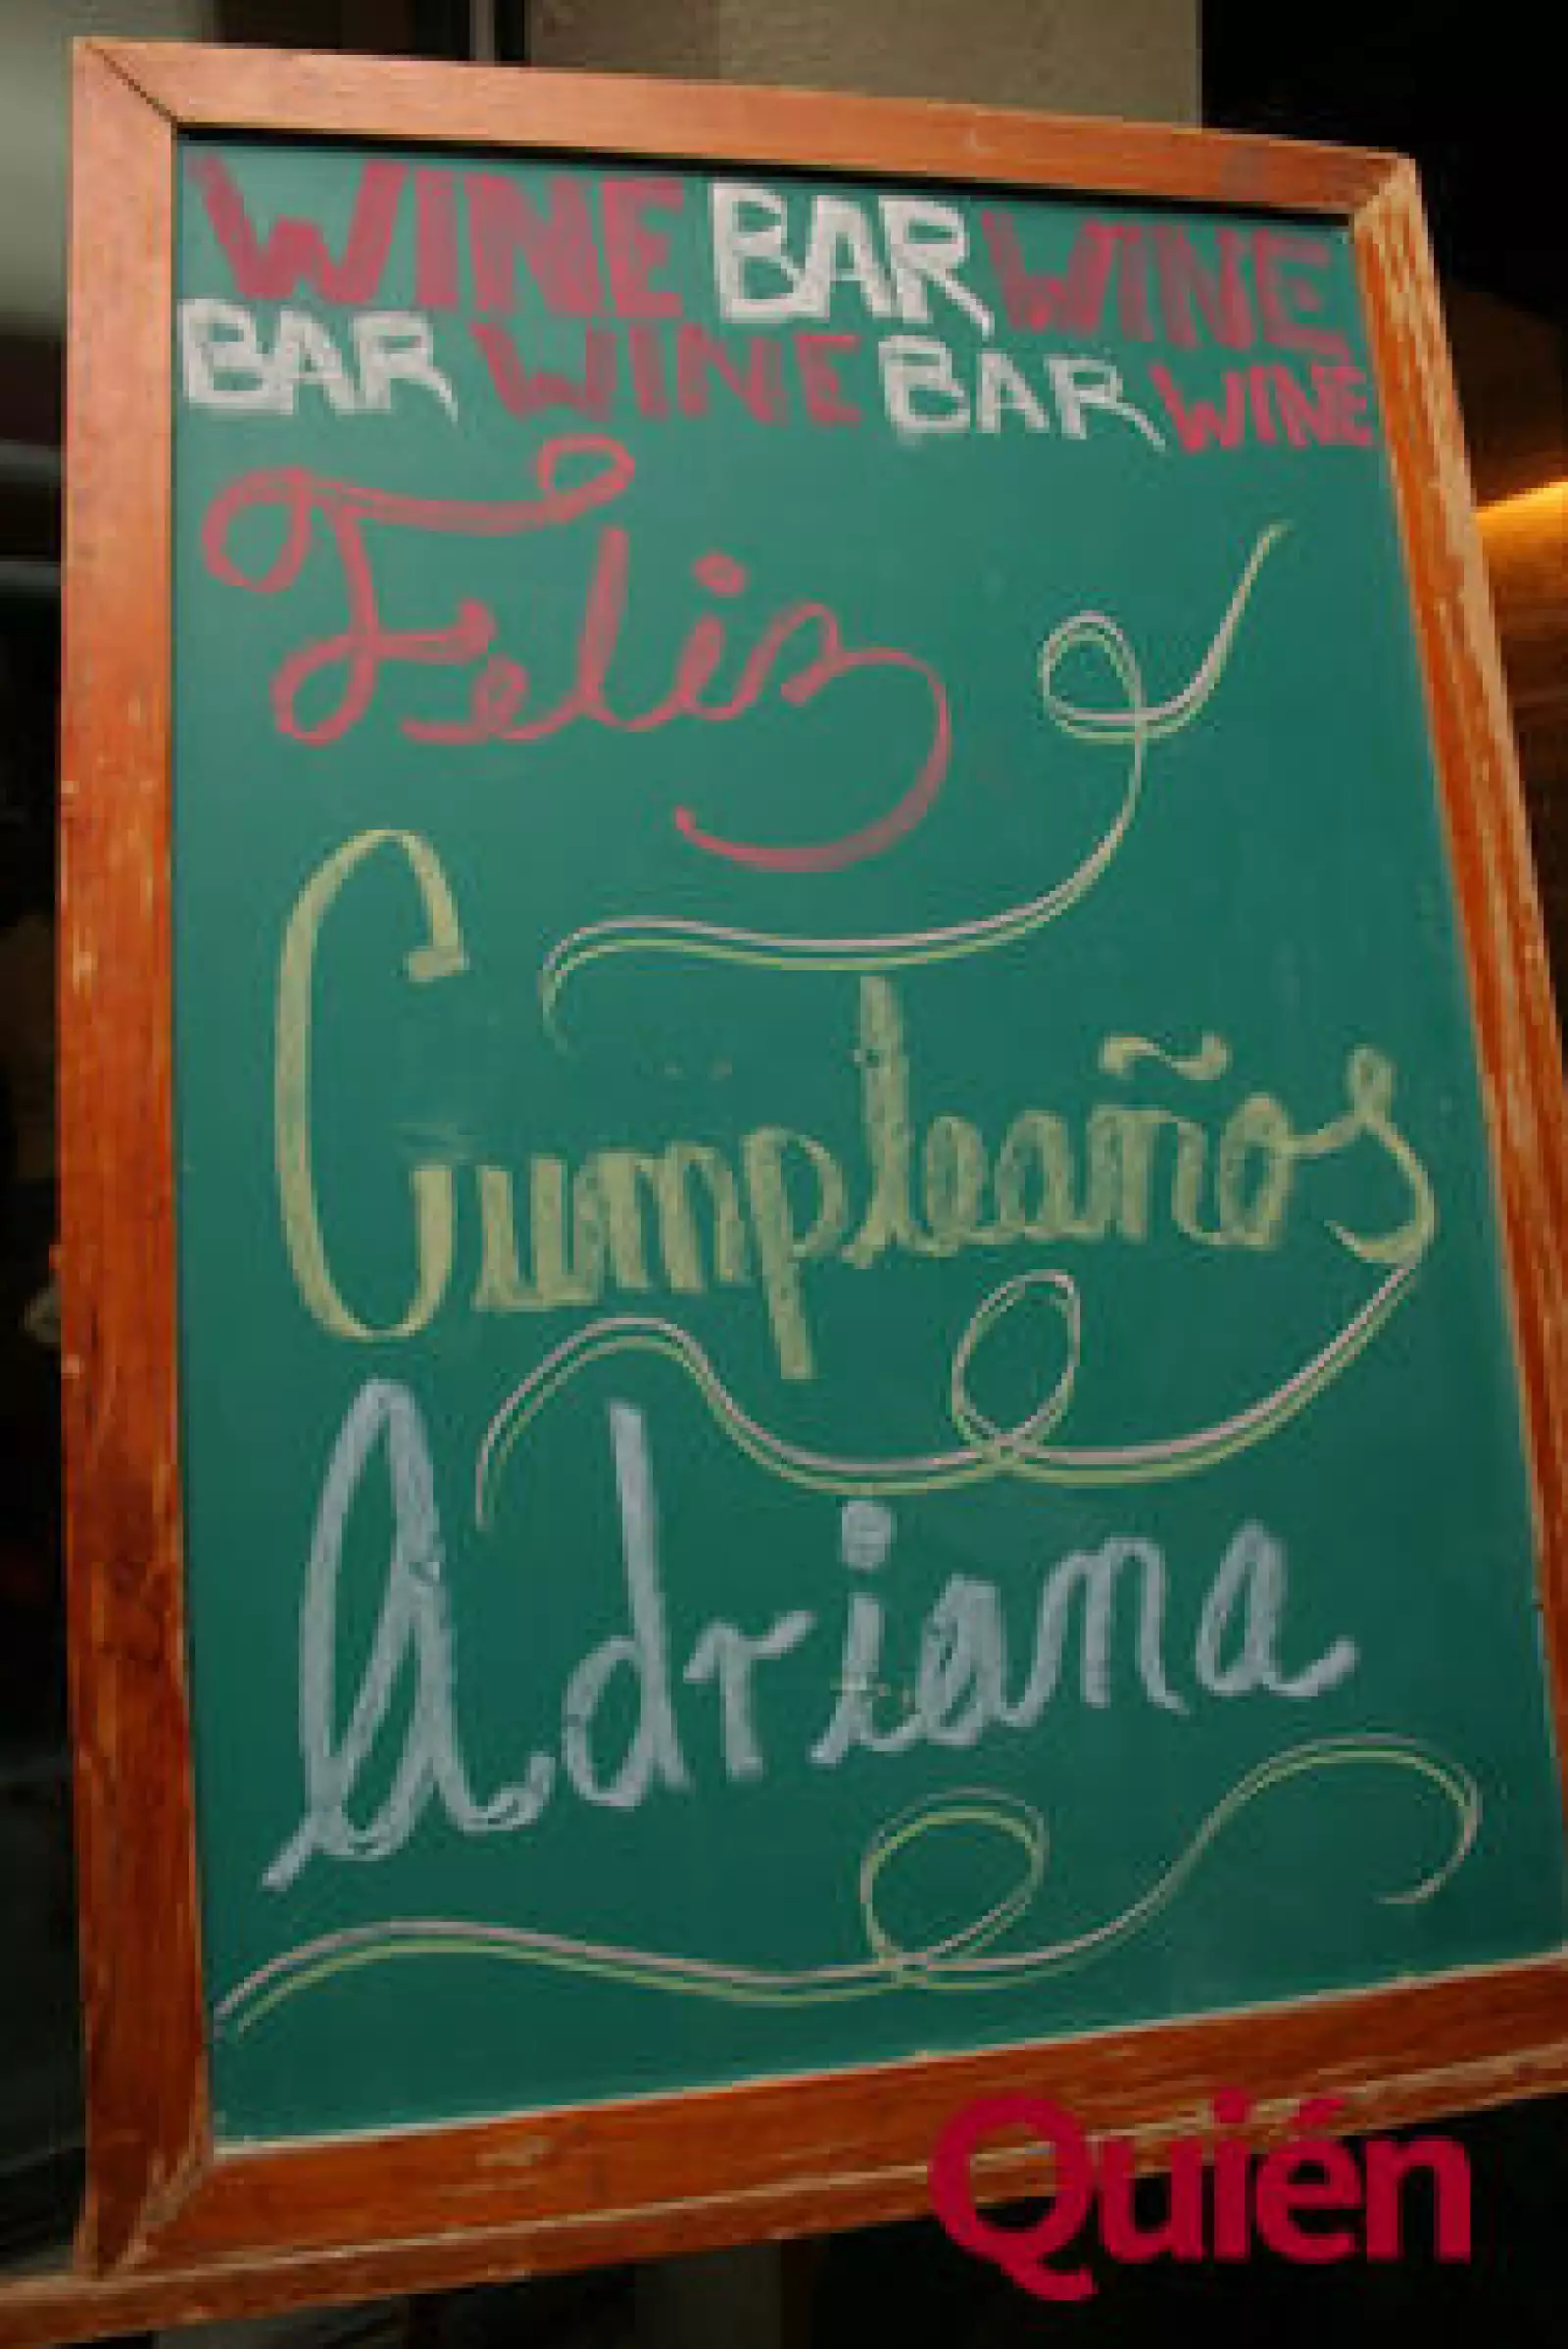 WINE BAR WINE
BAR WINE BAR WINE
Feliz
Cumpleaños
Adriana
Quién